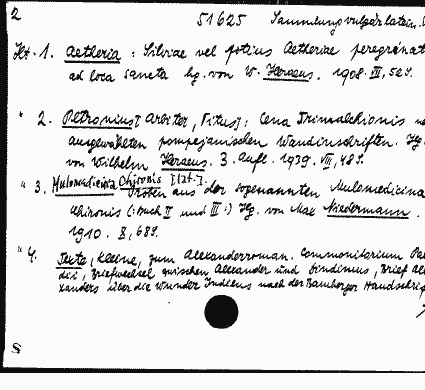 2 51625 Sammlung vulgärlatein.
Hft. 1. Aetheria: Silviae vel potius Aetheriae peregrinat
ad loca sancta hg. von W. Heraeus. 1908. VII, 52 S.
" 2. Petronius [Arbiter, Titus]: Cena Trimalchionis
ausgewählten pompejanischen Wandinschriften. Hg.
von Wilhelm Heraeus. 3. Aufl. 1939. VIII, 48 S.
" 3. Mulomedicina Chironis [lat.].
Proben aus der sogenannten Mulomedicina
Chironis (: Buch II und III :) Hg. von Max Niedermann.
1910. X, 68 S.
" 4. Texte, Kleine, zum Alexanderroman. Commonitorium Pal
dii, Briefwechsel zwischen Alexander und Dindimus, Brief Ale
xanders über die Wunder Indiens nach der Bamberger Handschrif